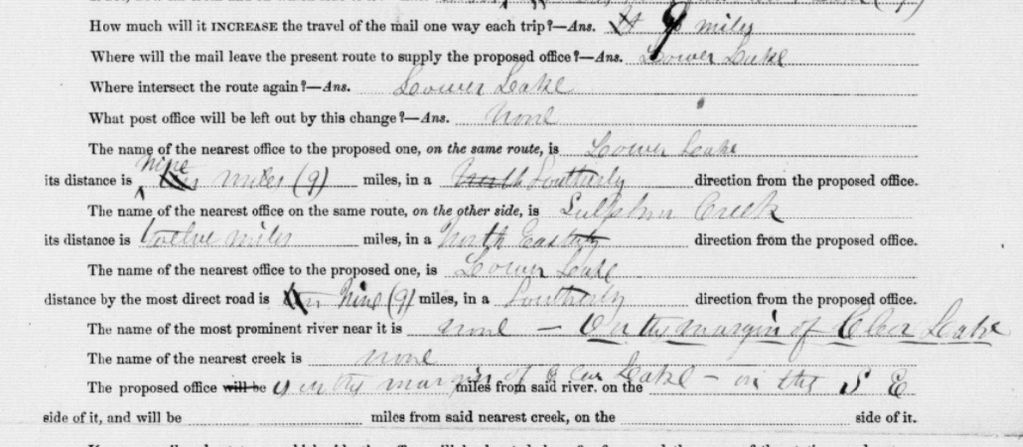 How much will it INCREASE the travel of the mail one way each trip?—Ans. 9 miles
Where will the mail leave the present route to supply the proposed office?—Ans. Lower Lake
Where intersect the route again?—Ans. Lower Lake
What post office will be left out by this change?—Ans. none
The name of the nearest office to the proposed one, on the same route, is Lower Lake
its distance is nine miles (9) miles, in a North Southerly direction from the proposed office.
The name of the nearest office on the same route, on the other side, is Sulphur Creek
its distance is twelve miles miles, in a North Easterly direction from the proposed office.
The name of the nearest office to the proposed one, is Lower Lake
distance by the most direct road is ten Nine (9) miles, in a Southerly direction from the proposed office.
The name of the most prominent river near it is none — On the margin of Clear Lake
The name of the nearest creek is none
The proposed office will be is on the margin of Clear Lake — on the S E miles from said river, on the
side of it, and will be miles from said nearest creek, on the side of it.